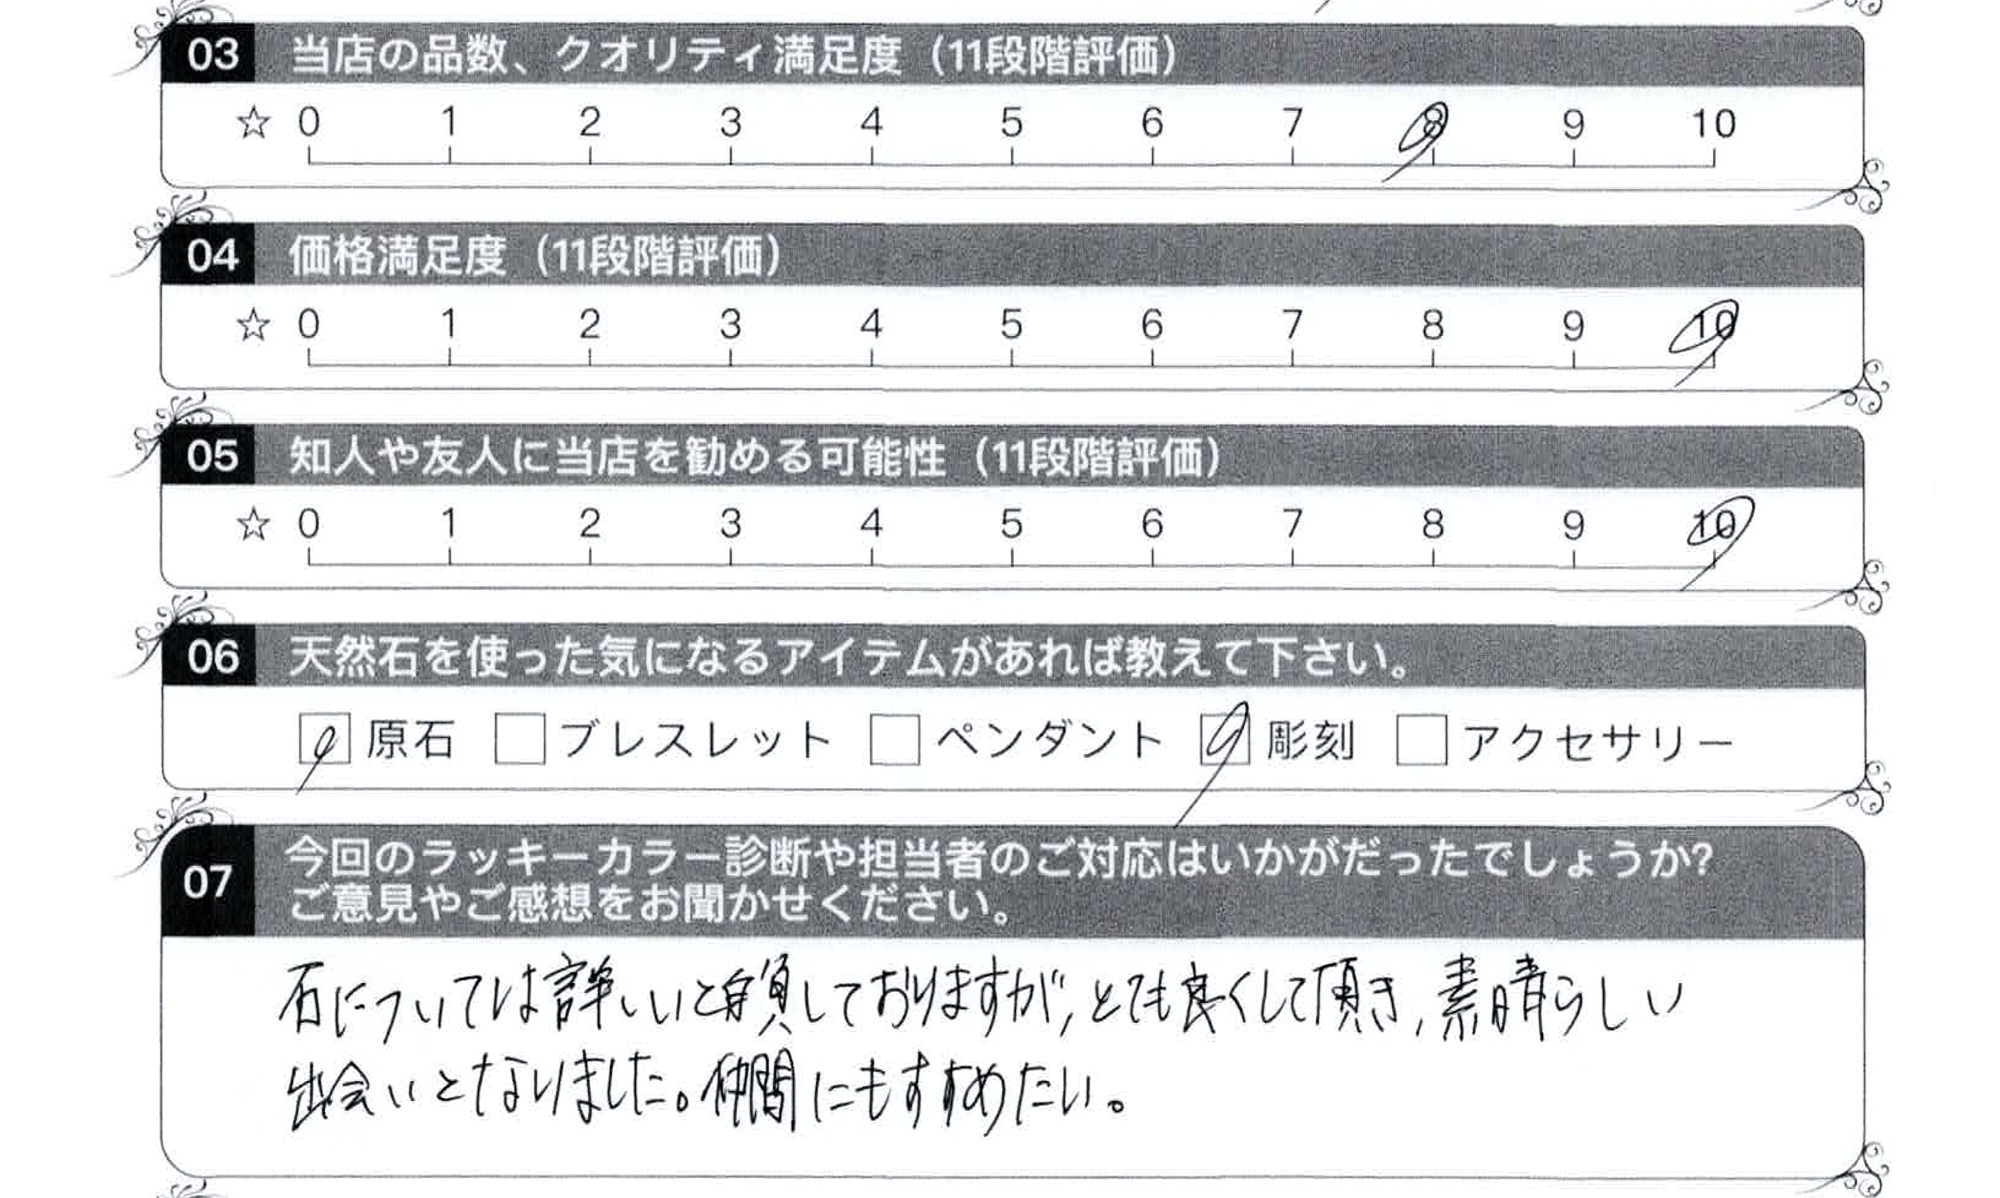 03 当店の品数、クオリティ満足度（11段階評価）
☆ 0 1 2 3 4 5 6 7 8 9 10
04 価格満足度（11段階評価）
☆ 0 1 2 3 4 5 6 7 8 9 10
05 知人や友人に当店を勧める可能性（11段階評価）
☆ 0 1 2 3 4 5 6 7 8 9 10
06 天然石を使った気になるアイテムがあれば教えて下さい。
原石 ブレスレット ペンダント 彫刻 アクセサリー
07 今回のラッキーカラー診断や担当者のご対応はいかがだったでしょうか?
ご意見やご感想をお聞かせください。
石については詳しいと自負しておりますが、とても良くして頂き、素晴らしい
出会いとなりました。仲間にもすすめたい。